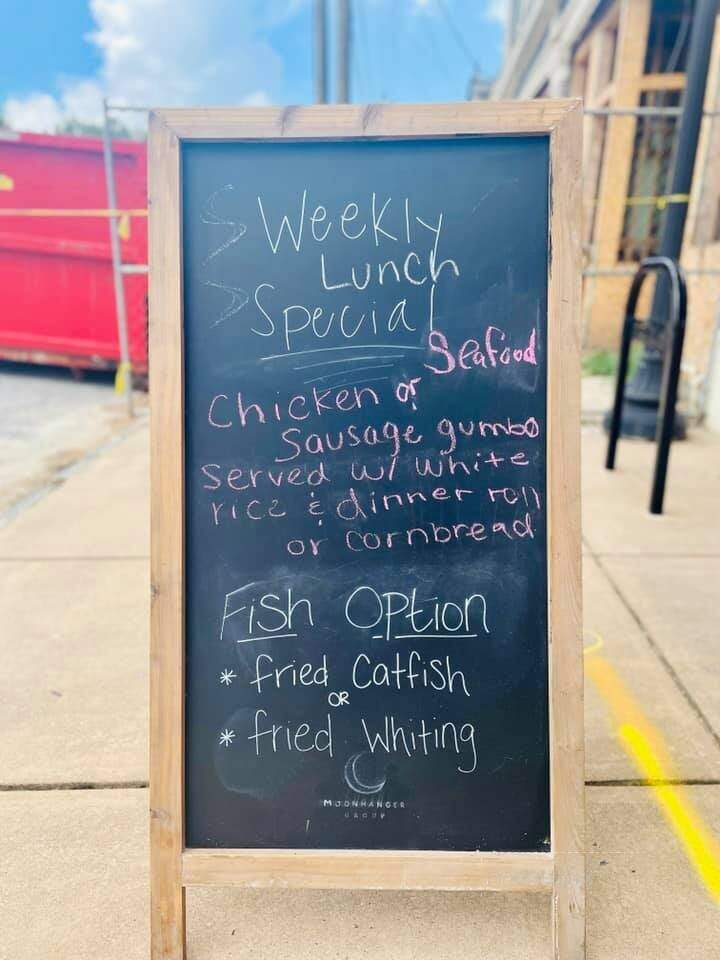 Weekly
Lunch
Special
Seafood
Chicken or
Sausage gumbo
Served w/ white
rice & dinner roll
or cornbread
Fish Option
* fried Catfish
OR
* fried Whiting
MOONHANGER
GROUP